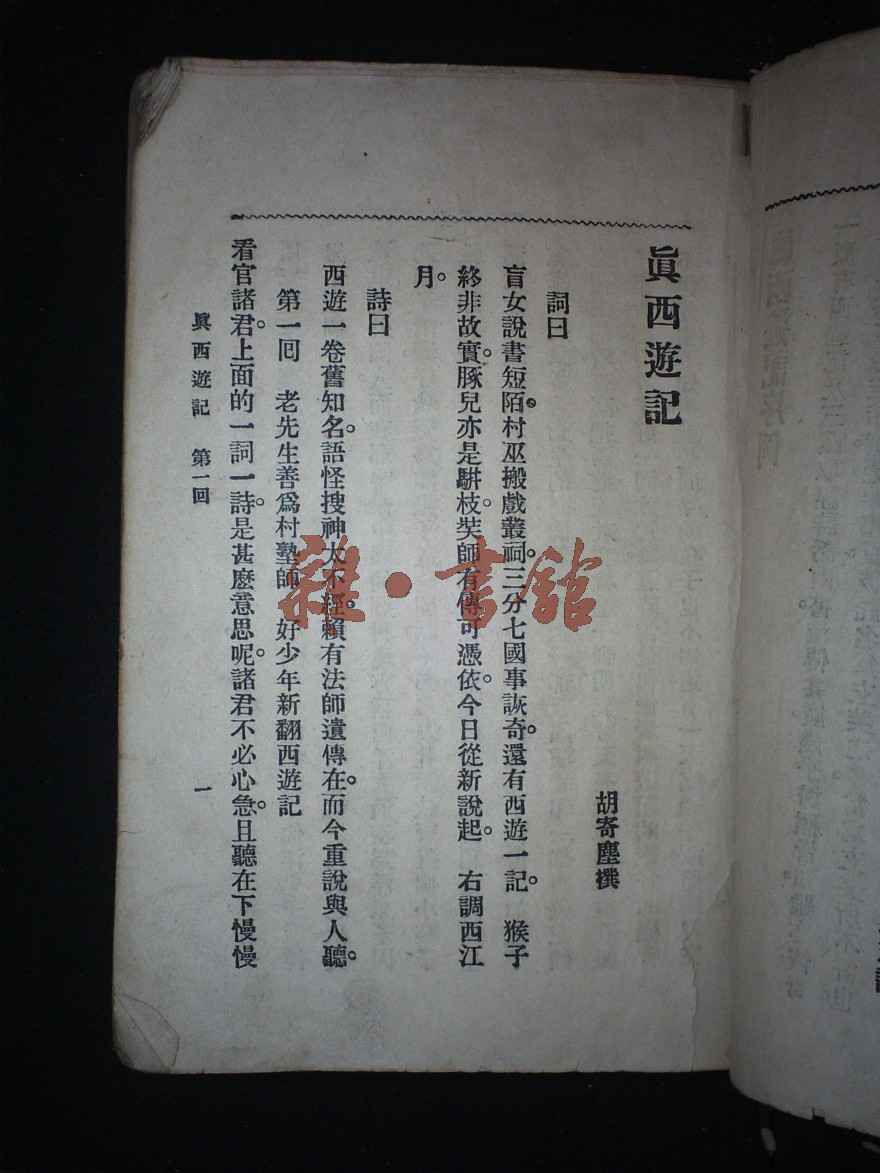 眞西遊記
胡寄塵撰
詞曰
盲女說書短陌。村巫搬戲叢祠。三分七國事詼奇。還有西遊一記。　猴子
終非故實。豚兒亦是騈枝。奘師有傳可憑依。今日從新說起。　右調西江
月。
詩曰
西遊一卷舊知名。語怪搜神太不經。賴有法師遺傳在。而今重說與人聽。
第一回　老先生善爲村塾師　好少年新翻西遊記
看官諸君。上面的一詞一詩。是甚麽意思呢。諸君不必心急。且聽在下慢慢
眞西遊記　第一回　一
雜·書館